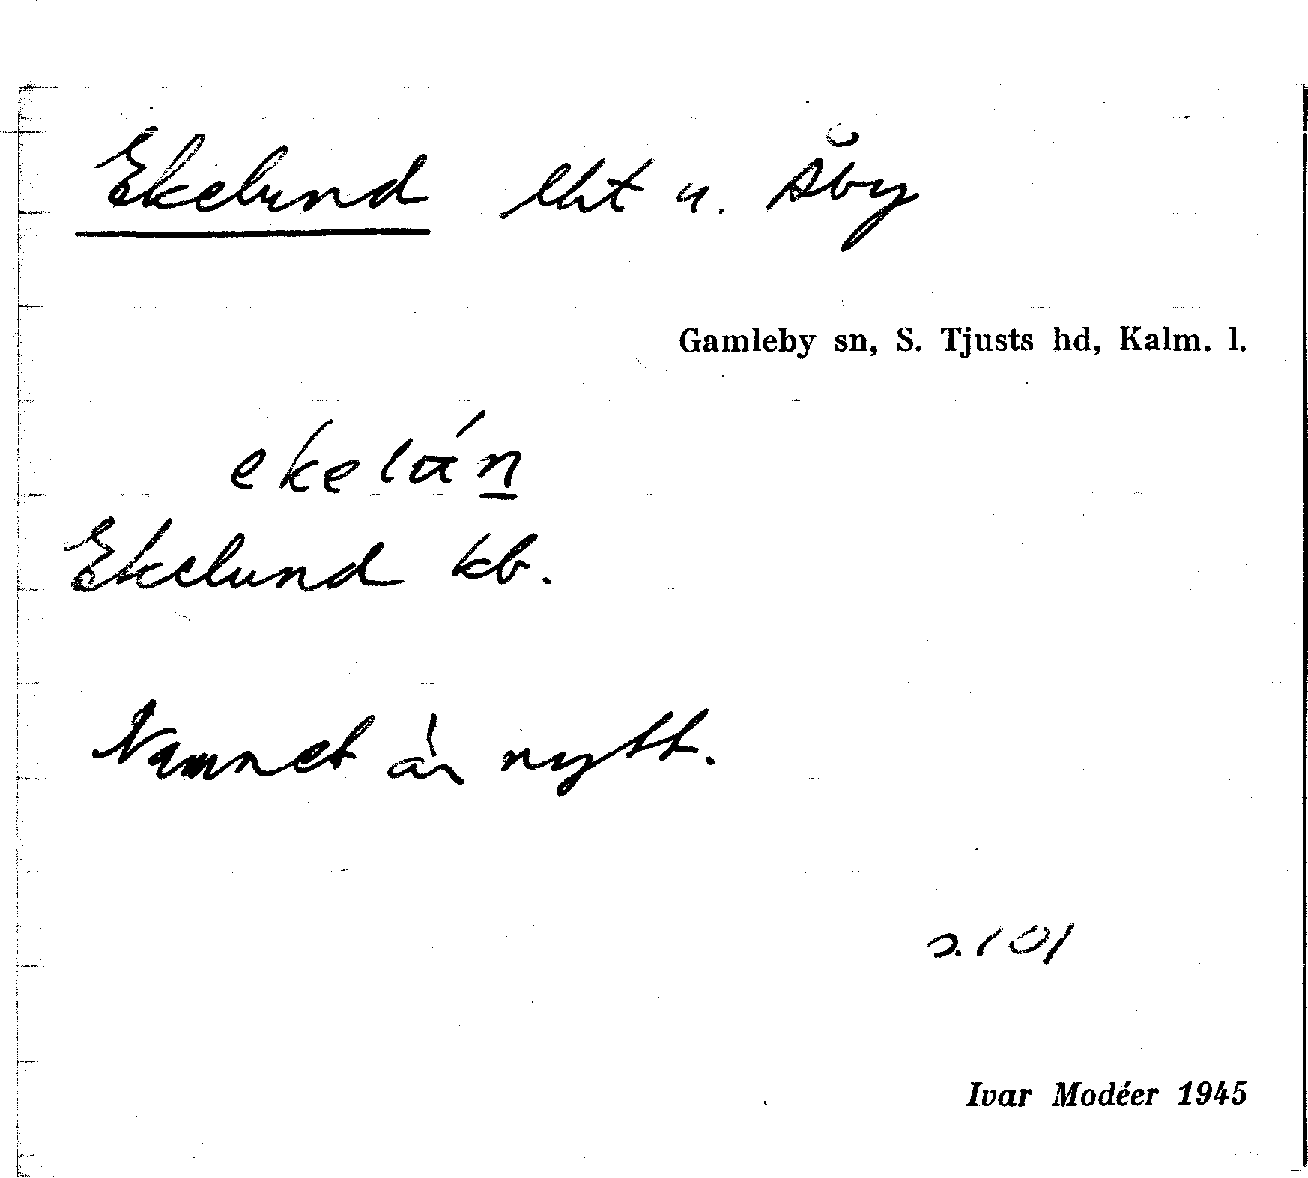 Ekelund lht u. Åby
Gamleby sn, S. Tjusts hd, Kalm. l.
ekelún
Ekelund kb.
Namnet är nytt.
s. 101
Ivar Modéer 1945